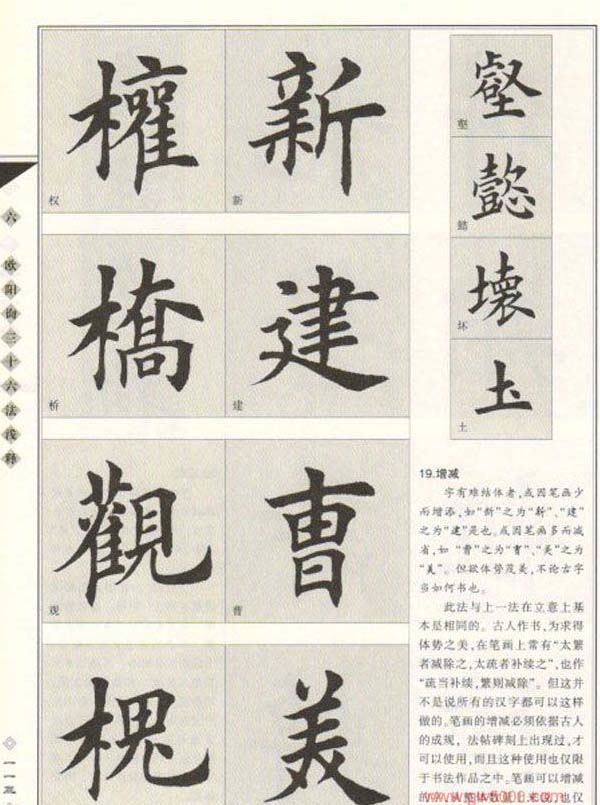 六
欧阳询三十六法浅释
一一三
權
权
新
新
橋
桥
建
建
觀
观
曹
曹
槐
美
壑
懿
懿
壞
坏
土
土
19.增减
字有难结体者,或因笔画少
而增添,如“新”之为“新”、“建”
之为“建”是也。或因笔画多而减
省,如“曹”之为“曺”、“美”之为
“美”。但欲体势茂美,不论古字
当如何书也。
此法与上一法在立意上基
本是相同的。古人作书,为求得
体势之美,在笔画上常有“太繁
者减除之,太疏者补续之”,也作
“疏当补续,繁则减除”。但这并
不是说所有的汉字都可以这样
做的。笔画的增减必须依据古人
的成规,法帖碑刻上出现过,才
可以使用,而且这种使用也仅限
于书法作品之中。笔画可以增减